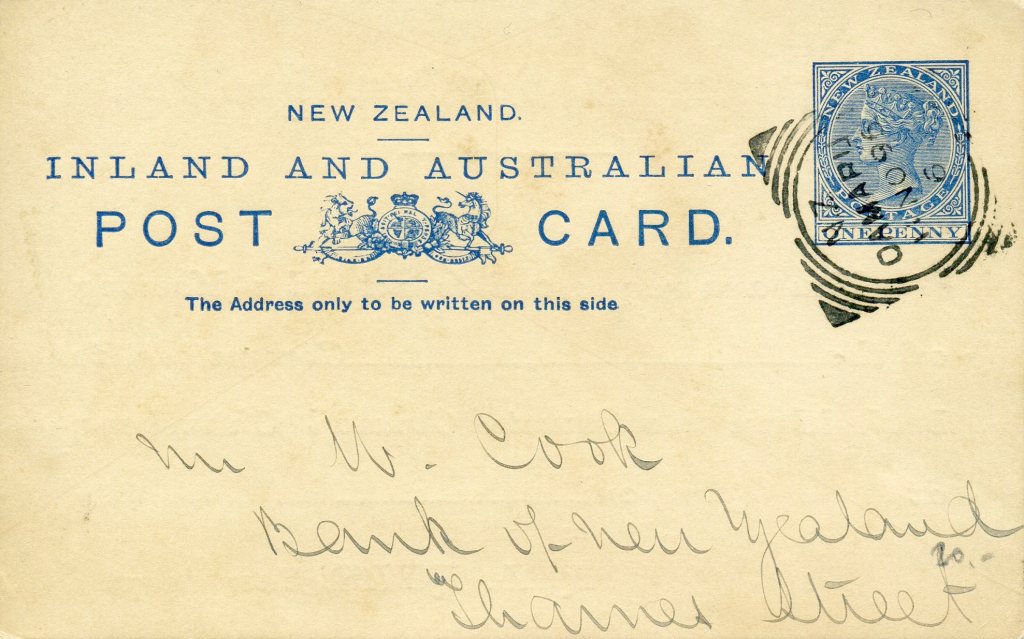 NEW ZEALAND.
INLAND AND AUSTRALIAN
POST CARD.
The Address only to be written on this side
NEW ZEALAND
POSTAGE
ONE PENNY
OAMARU
Mr W. Cook
Bank of New Zealand
Thames Street
20.-